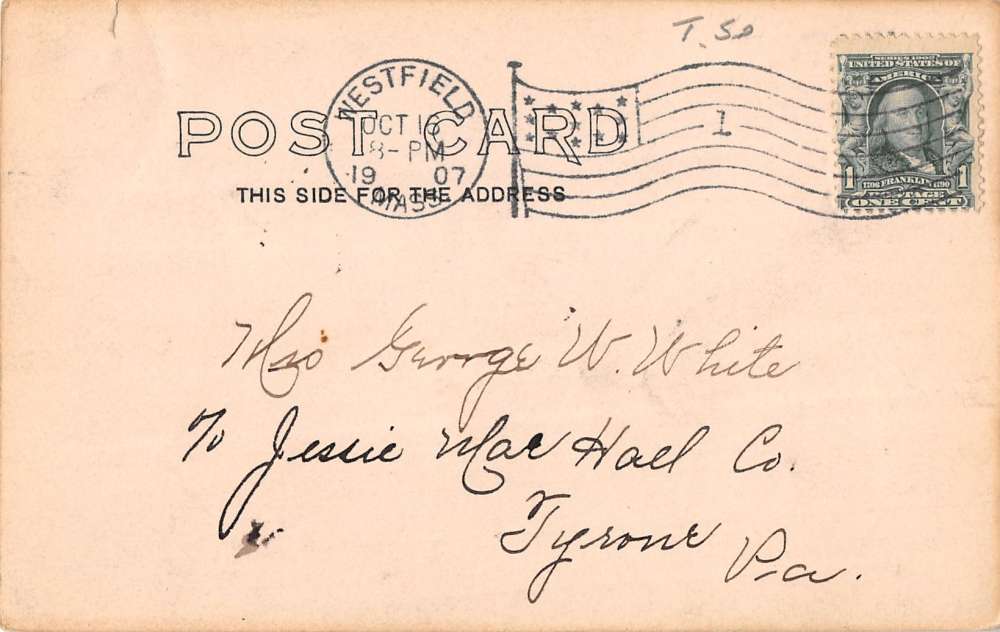 T. 50
POST CARD
THIS SIDE FOR THE ADDRESS
WESTFIELD
OCT 16
8-PM
1907
MASS
1
SERIES 1902
UNITED STATES OF
AMERICA
1706 FRANKLIN 1790
1 POSTAGE 1
ONE CENT
Mrs George W. White
% Jessie Mac Hall Co.
Tyrone
Pa.